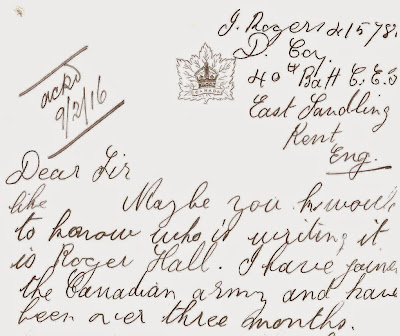 J. Rogers 415781
D. Coy.
40th Batt C.E.F
East Sandling
Kent
Eng.
ackd
9/2/16
CANADA
Dear Sir
Maybe you would
like to know who is writing it
is Roger Hall. I have joined
the Canadian army and have
been over three months.